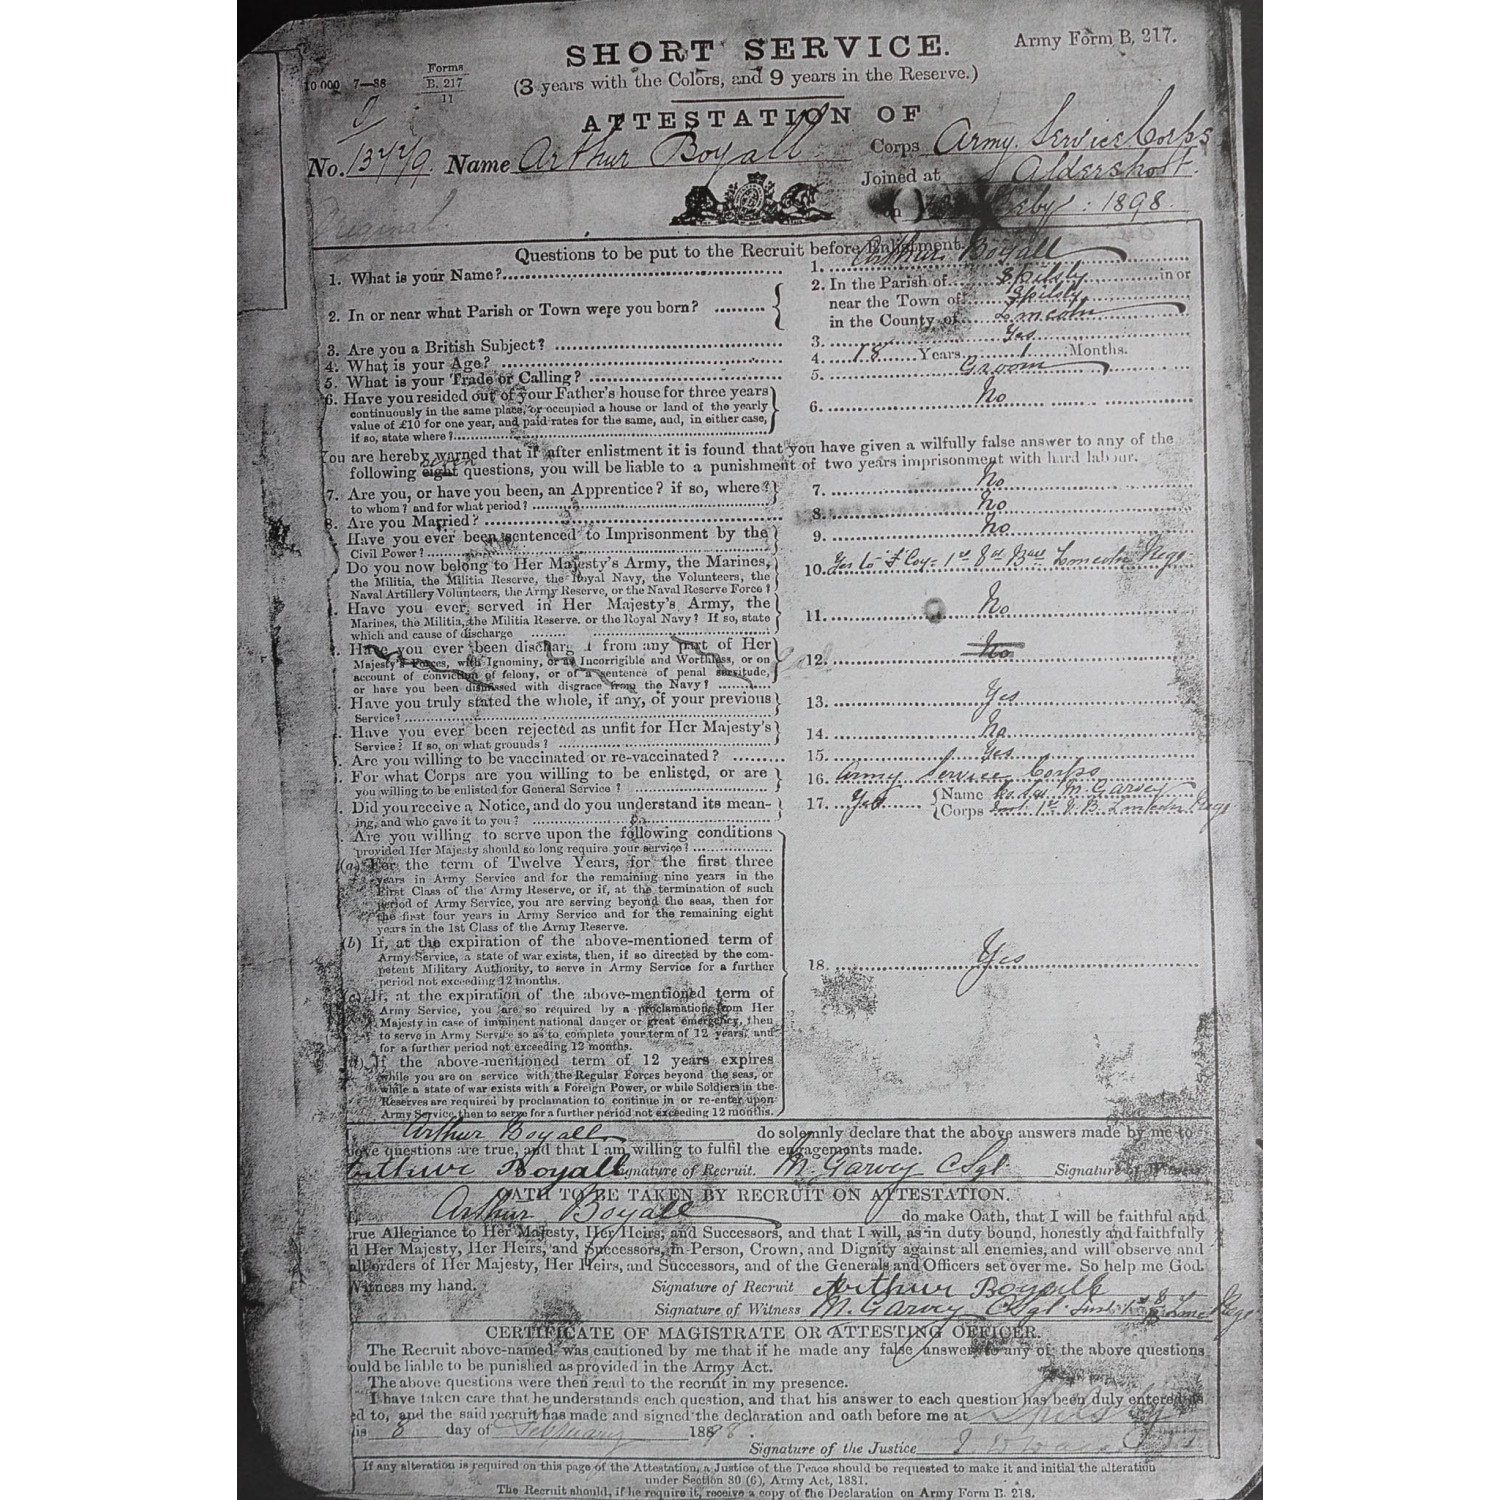 SHORT SERVICE.
Army Form B. 217.
(3 years with the Colors, and 9 years in the Reserve.)
10 000 7—88 Forms B. 217 11
ATTESTATION OF
No. 13779. Name Arthur Boyall Corps Army Service Corps
Joined at Aldershott.
Original. on 1898.
Questions to be put to the Recruit before Enlistment.
1. What is your Name? 1. Arthur Boyall
2. In or near what Parish or Town were you born? 2. In the Parish of Spilsby in or
near the Town of Spilsby
in the County of Lincoln
3. Are you a British Subject? 3. Yes
4. What is your Age? 4. 18 Years 1 Months.
5. What is your Trade or Calling? 5. Groom
6. Have you resided out of your Father's house for three years
continuously in the same place, or occupied a house or land of the yearly
value of £10 for one year, and paid rates for the same, and, in either case,
if so, state where? 6. No
You are hereby warned that if after enlistment it is found that you have given a wilfully false answer to any of the
following eight seven questions, you will be liable to a punishment of two years imprisonment with hard labour.
7. Are you, or have you been, an Apprentice? if so, where?
to whom? and for what period? 7. No
8. Are you Married? 8. No
Have you ever been sentenced to Imprisonment by the
Civil Power? 9. No
Do you now belong to Her Majesty's Army, the Marines,
the Militia, the Militia Reserve, the Royal Navy, the Volunteers, the
Naval Artillery Volunteers, the Army Reserve, or the Naval Reserve Force? 10. Yes to F Coy 1st Bn Lincoln Regt
Have you ever served in Her Majesty's Army, the
Marines, the Militia, the Militia Reserve. or the Royal Navy? If so, state
which and cause of discharge 11. No
Have you ever been discharg from any part of Her
Majesty's Forces, with Ignominy, or as Incorrigible and Worthless, or on
account of conviction of felony, or of a sentence of penal servitude,
or have you been dismissed with disgrace from the Navy? 12. No
Have you truly stated the whole, if any, of your previous
Service? 13. Yes
Have you ever been rejected as unfit for Her Majesty's
Service? If so, on what grounds? 14. No
Are you willing to be vaccinated or re-vaccinated? 15. Yes
For what Corps are you willing to be enlisted, or are
you willing to be enlisted for General Service? 16. Army Service Corps
Did you receive a Notice, and do you understand its mean-
ing, and who gave it to you? 17. Yes Name M. Garvey
Corps 1st V. B. Lincoln Regt
Are you willing to serve upon the following conditions
provided Her Majesty should so long require your service?
(a) For the term of Twelve Years, for the first three
years in Army Service and for the remaining nine years in the
First Class of the Army Reserve, or if, at the termination of such
period of Army Service, you are serving beyond the seas, then for
the first four years in Army Service and for the remaining eight
years in the 1st Class of the Army Reserve.
(b) If, at the expiration of the above-mentioned term of
Army Service, a state of war exists, then, if so directed by the com-
petent Military Authority, to serve in Army Service for a further
period not exceeding 12 months.
18. Yes
(c) If, at the expiration of the above-mentioned term of
Army Service, you are so required by a proclamation from Her
Majesty in case of imminent national danger or great emergency, then
to serve in Army Service so as to complete your term of 12 years, and
for a further period not exceeding 12 months.
(d) If the above-mentioned term of 12 years expires
while you are on service with the Regular Forces beyond the seas, or
while a state of war exists with a Foreign Power, or while Soldiers in the
Reserves are required by proclamation to continue in or re-enter upon
Army Service, then to serve for a further period not exceeding 12 months.
I, Arthur Boyall do solemnly declare that the above answers made by me to
above questions are true, and that I am willing to fulfil the engagements made.
Arthur Boyall Signature of Recruit. M. Garvey C Sgt Signature of Witness
OATH TO BE TAKEN BY RECRUIT ON ATTESTATION.
Arthur Boyall do make Oath, that I will be faithful and
true Allegiance to Her Majesty, Her Heirs, and Successors, and that I will, as in duty bound, honestly and faithfully
d Her Majesty, Her Heirs, and Successors, in Person, Crown, and Dignity against all enemies, and will observe and
all orders of Her Majesty, Her Heirs, and Successors, and of the Generals and Officers set over me. So help me God.
Witness my hand. Signature of Recruit Arthur Boyall
Signature of Witness M. Garvey C Sgt
CERTIFICATE OF MAGISTRATE OR ATTESTING OFFICER.
The Recruit above-named was cautioned by me that if he made any false answer to any of the above questions
ould be liable to be punished as provided in the Army Act.
The above questions were then read to the recruit in my presence.
I have taken care that he understands each question, and that his answer to each question has been duly entered as
ed to, and the said recruit has made and signed the declaration and oath before me at Spilsby
is 8 day of February 1898.
Signature of the Justice
If any alteration is required on this page of the Attestation, a Justice of the Peace should be requested to make it and initial the alteration
under Section 80 (6), Army Act, 1881.
The Recruit should, if he require it, receive a copy of the Declaration on Army Form B. 218.